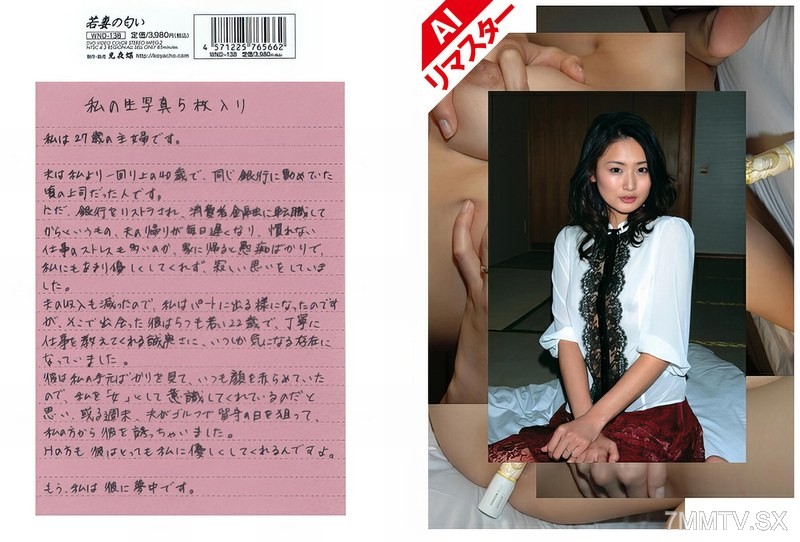 若妻の匂い
WNO-138 定価/3,980円(税込)
DVD VIDEO COLOR STEREO MPEG-2
NTSC 4:3 REGION-ALL SELL ONLY 85minutes
http://koyacho.com
4 571225 765662
WNO-138 定価/3,980円(税込)
私の生写真5枚入り
私は27歳の主婦です。
夫は私より一回り上の40歳で、同じ銀行に勤めていた
頃の上司だった人です。
ただ、銀行をリストラされ、消費者金融に転職して
からというもの、夫の帰りが毎日遅くなり、慣れない
仕事のストレスも多いのか、家に帰ると愚痴ばかりで、
私にもあまり優しくしてくれず、寂しい思いをしていま
した。
夫の収入も減ったので、私はパートに出る様になったのです
が、そこで出会った彼は5つも若い22歳で、丁寧に
仕事を教えてくれる誠実さに、いつしか気になる存在に
なっていました。
彼は私の手元ばかりを見て、いつも顔を赤らめていた
ので、私を「女」として意識してくれているのだと
思い、或る週末、夫がゴルフで留守の日を狙って、
私の方から彼を誘っちゃいました。
Hの方も彼はとっても私に優しくしてくれるんですよ。
もう、私は彼に夢中です。
AI
リマスター
7MMTV.SX